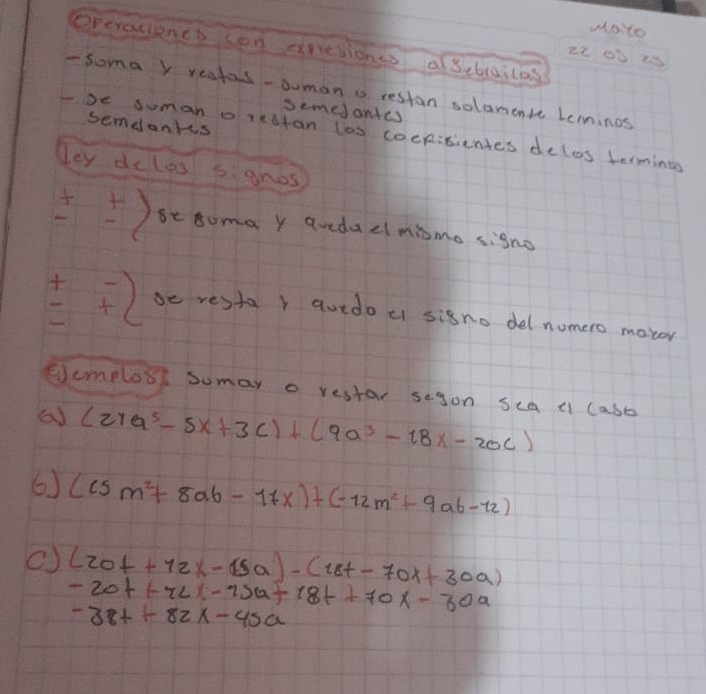 Operaciones con expresiones algebraicas
Mayo
22 05 23
- Suma y restas - suman o restan solamente terminos
semejantes
- se suman o restan los coeficientes de los terminos
semejantes
Ley de los signos
+ +
- - ) se suma y queda el mismo signo
+ -
- + ) se resta y queda el signo del numero mayor
Ejemplos: Sumar o restar segun sea el caso
a) (21a³ - 5x + 3c) + (9a³ - 18x - 20c)
b) (15m² + 8ab - 11x) + (-12m² + 9ab - 12)
c) (20t + 12x - 15a) - (18t - 70x + 30a)
- 20t + 12x - 15a + 18t + 70x - 30a
- 38t + 82x - 45a